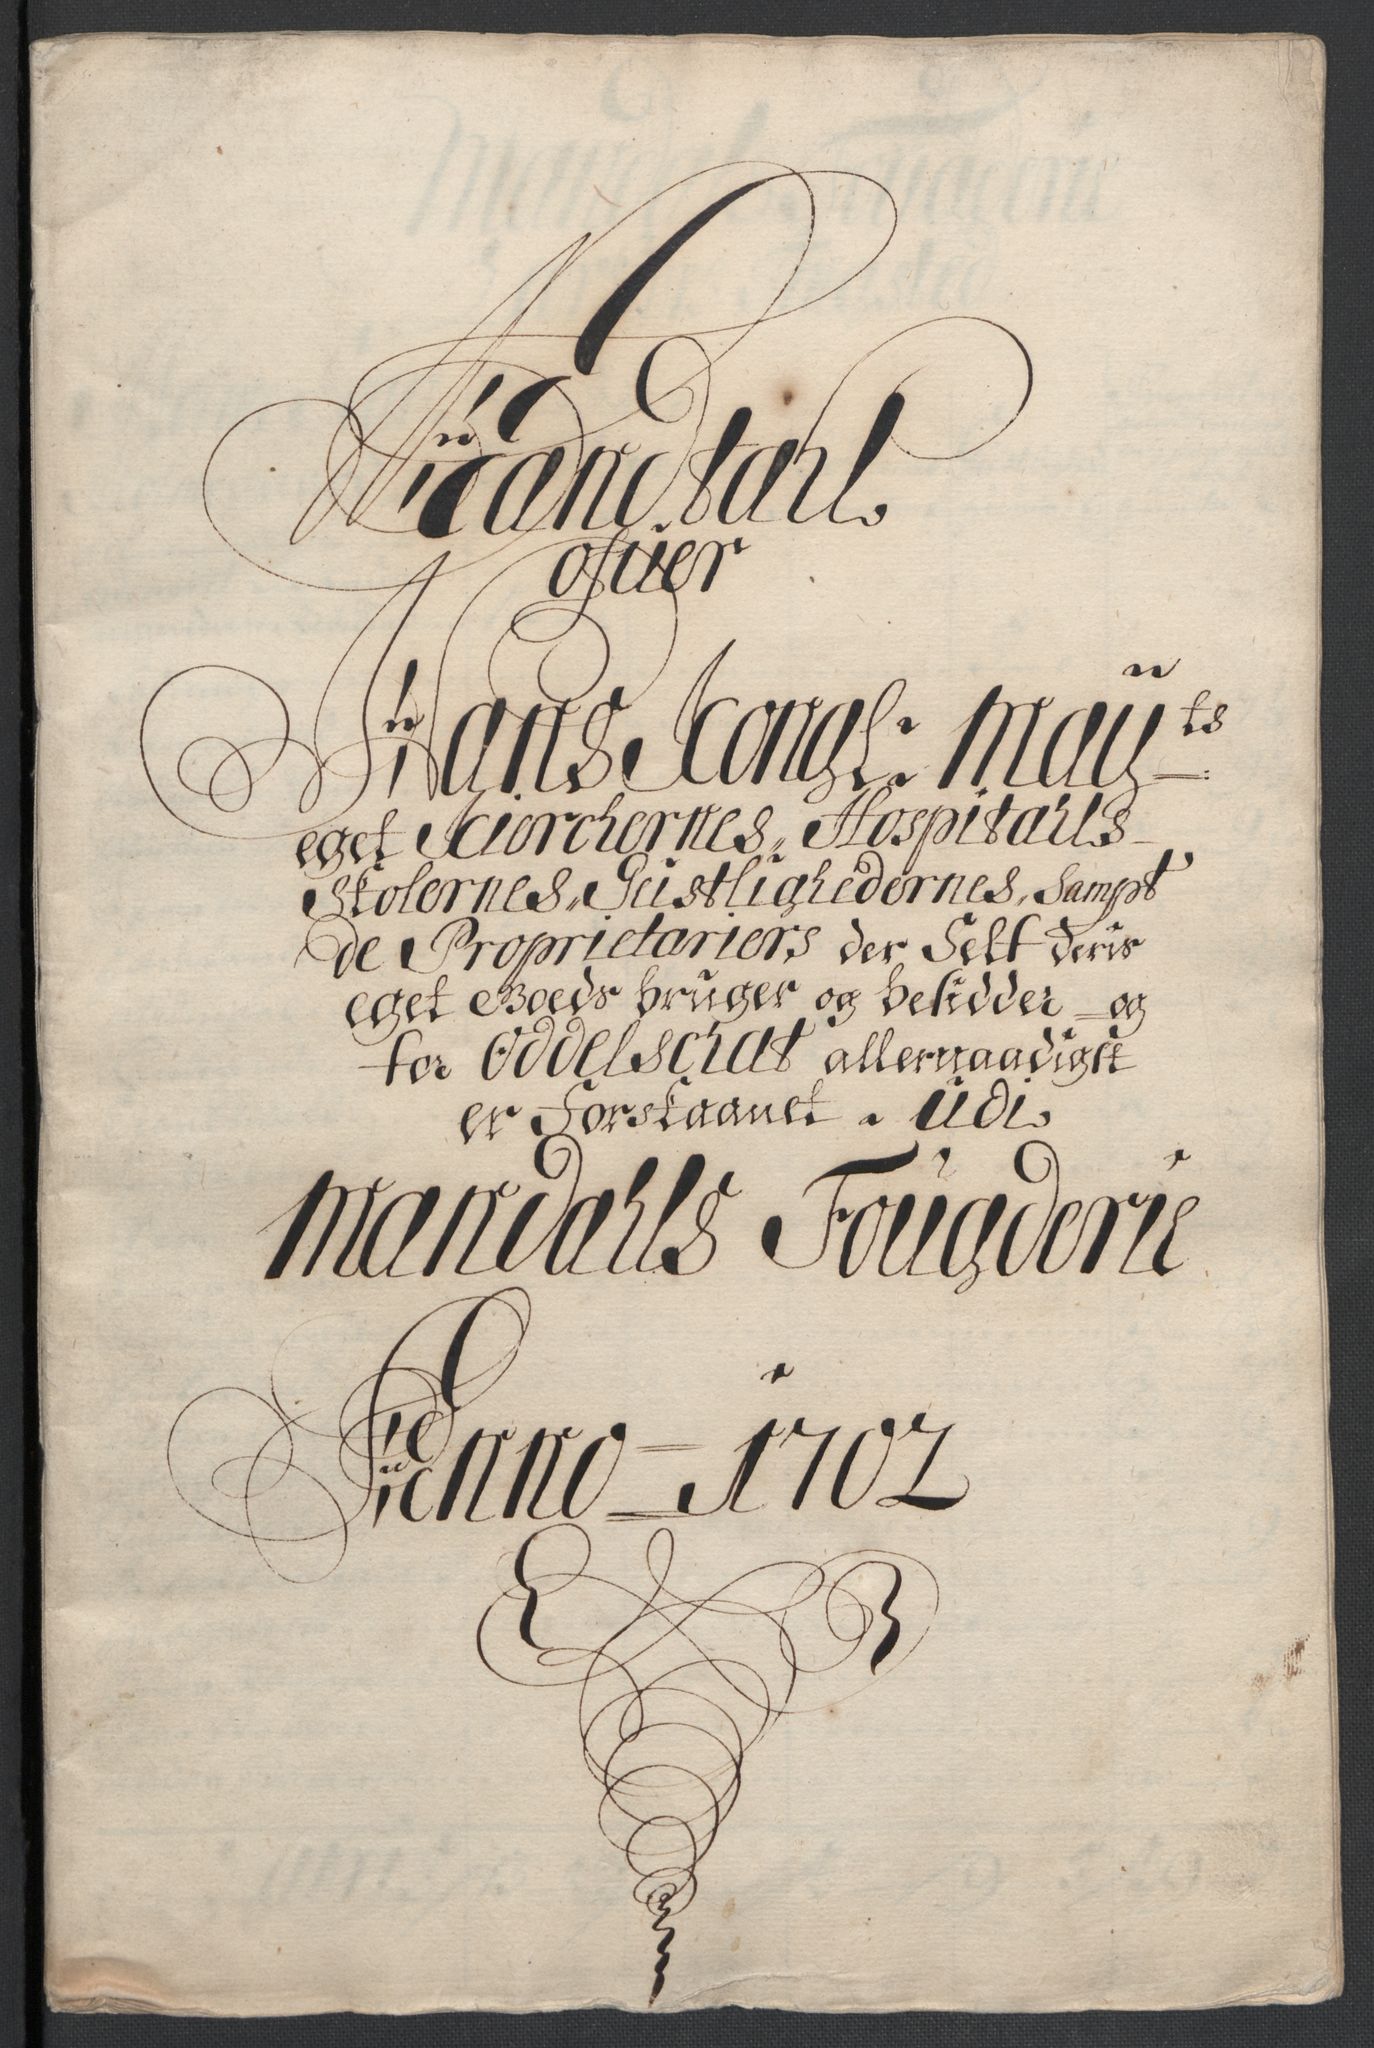 Mandtahl
ofuer
Hans Kongl: Maÿts
eget Kierchernes, Hospitahls
Skolernes, Geistlighedernes, Sampt
de Proprietariers der Self deris
eget Goeds bruger og besidder og
for Oddelschat allernaadigst
er Forskaanet, Udi
Mandahls Fougderie
Anno 1702